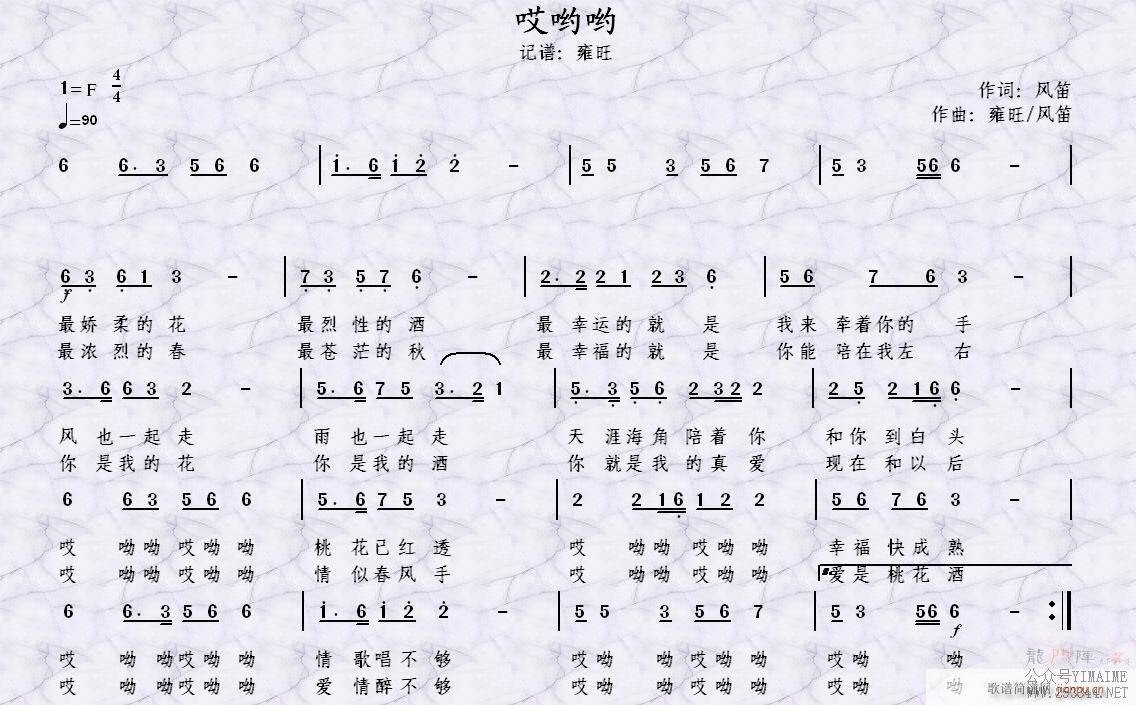 哎哟哟
记谱：雍旺
1=F 4/4
♩=90
作词：风笛
作曲：雍旺/风笛
6 6. 3 5 6 6 | i. 6 i 2 2 - | 5 5 3 5 6 7 | 5 3 5 6 6 - |
6 3 6 1 3 - | 7 3 5 7 6 - | 2. 2 2 1 2 3 6 | 5 6 7 6 3 - |
f
最娇柔的花 最烈性的酒 最幸运的就是 我来牵着你的手
最浓烈的春 最苍茫的秋 最幸福的就是 你能陪在我左右
3. 6 6 3 2 - | 5. 6 7 5 3. 2 1 | 5. 3 5 6 2 3 2 2 | 2 5 2 1 6 6 - |
风也一起走 雨也一起走 天涯海角陪着你 和你到白头
你是我的花 你是我的酒 你就是我的真爱 现在和以后
6 6 3 5 6 6 | 5. 6 7 5 3 - | 2 2 1 6 1 2 2 | 5 6 7 6 3 - |
哎 呦呦 哎呦 呦 桃花已红透 哎 呦呦 哎呦 呦 幸福快成熟
哎 呦呦 哎呦 呦 情似春风手 哎 呦呦 哎呦 呦 爱是桃花酒
6 6. 3 5 6 6 | i. 6 i 2 2 - | 5 5 3 5 6 7 | 5 3 5 6 6 - :|
f
哎 呦 呦哎呦 呦 情歌唱不够 哎呦 呦哎呦 呦 哎呦 呦
哎 呦 呦哎呦 呦 爱情醉不够 哎呦 呦哎呦 呦 哎呦 呦
公众号YIMAIME
歌谱简谱网